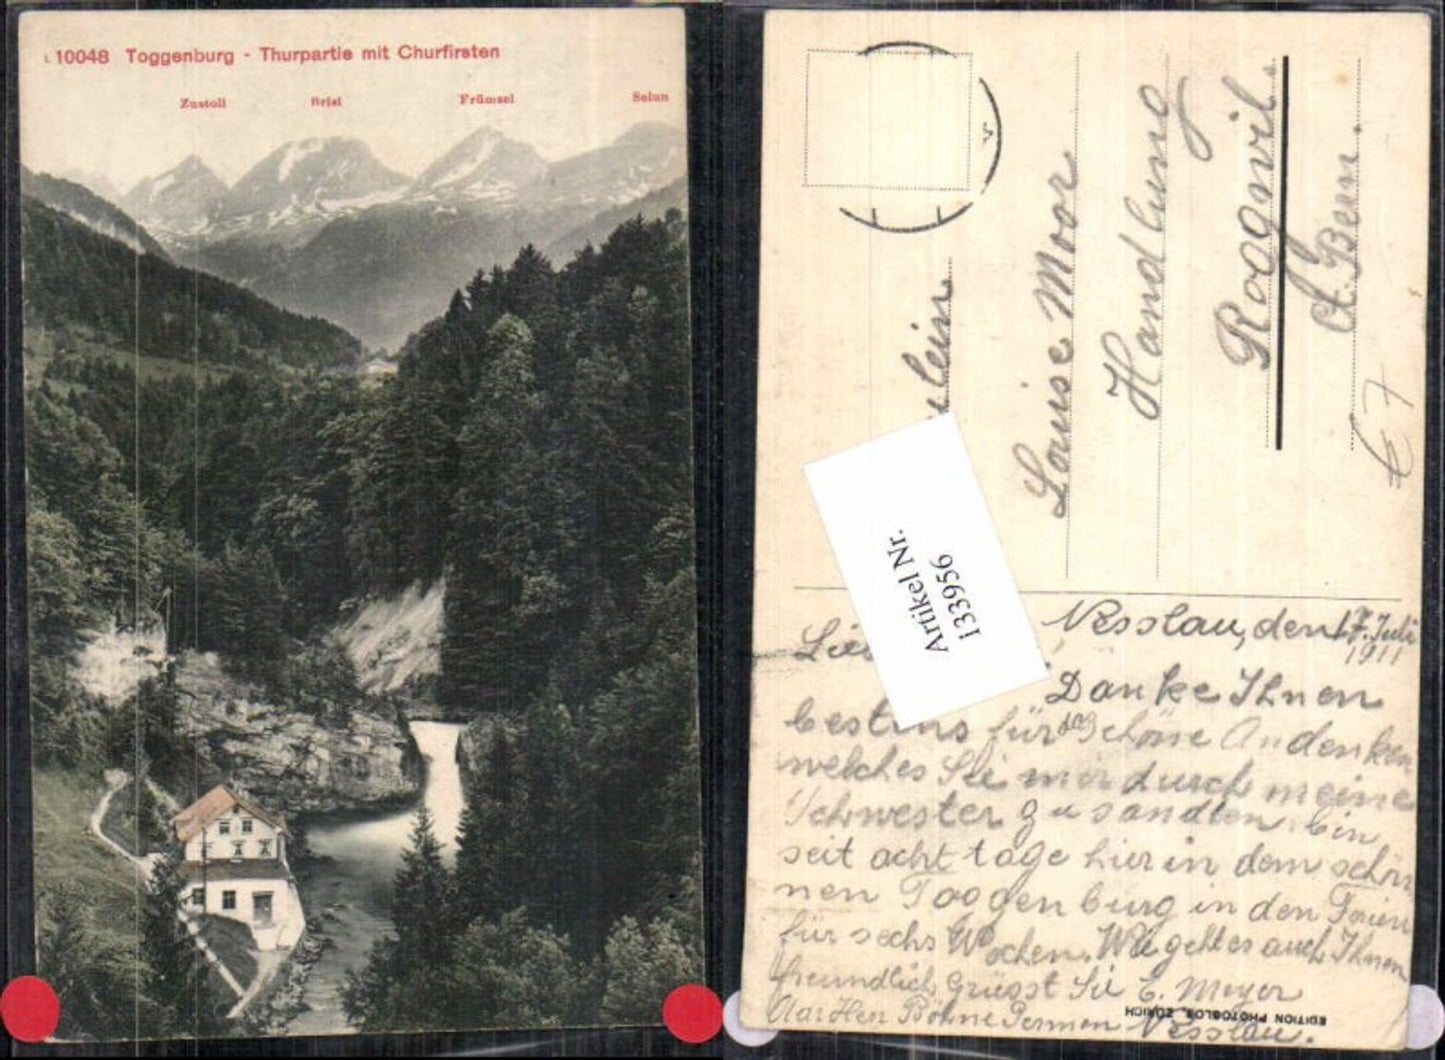 10048 Toggenburg - Thurpartie mit Churfirsten
Zustoll Brisi Frümsel Selun
lein
Louise Moor
Handlung
Roggwil
Ct. Bern.
€ 7
Artikel Nr.
133956
Nesslau, den 17. Juli
1911
Danke Ihnen
bestens für das schöne Andenken
welches Sie mir durch meine
Schwester zusandten. bin
seit acht tage hier in dem schön
nen Toggenburg in den Ferien
für sechs Wochen. Wie geht es auch Ihnen
freundlich Grüsst Sie E. Meyer
Nesslau.
EDITION PHOTOGLOB, ZÜRICH